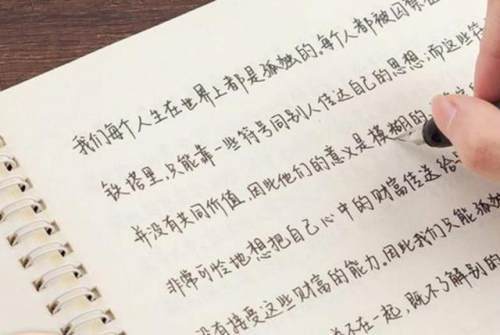 我们每个人生在世界上都是孤独的。每个人都被囚禁在
铁塔里，只能靠一些符号同别人传达自己的思想；而这些符
并没有共同价值，因此他们的意义是模糊的
非常可怜地想把自己心中的财富传送给
没有接受这些财富的能力。因此我们只能孤独
在一起，既不了解别的